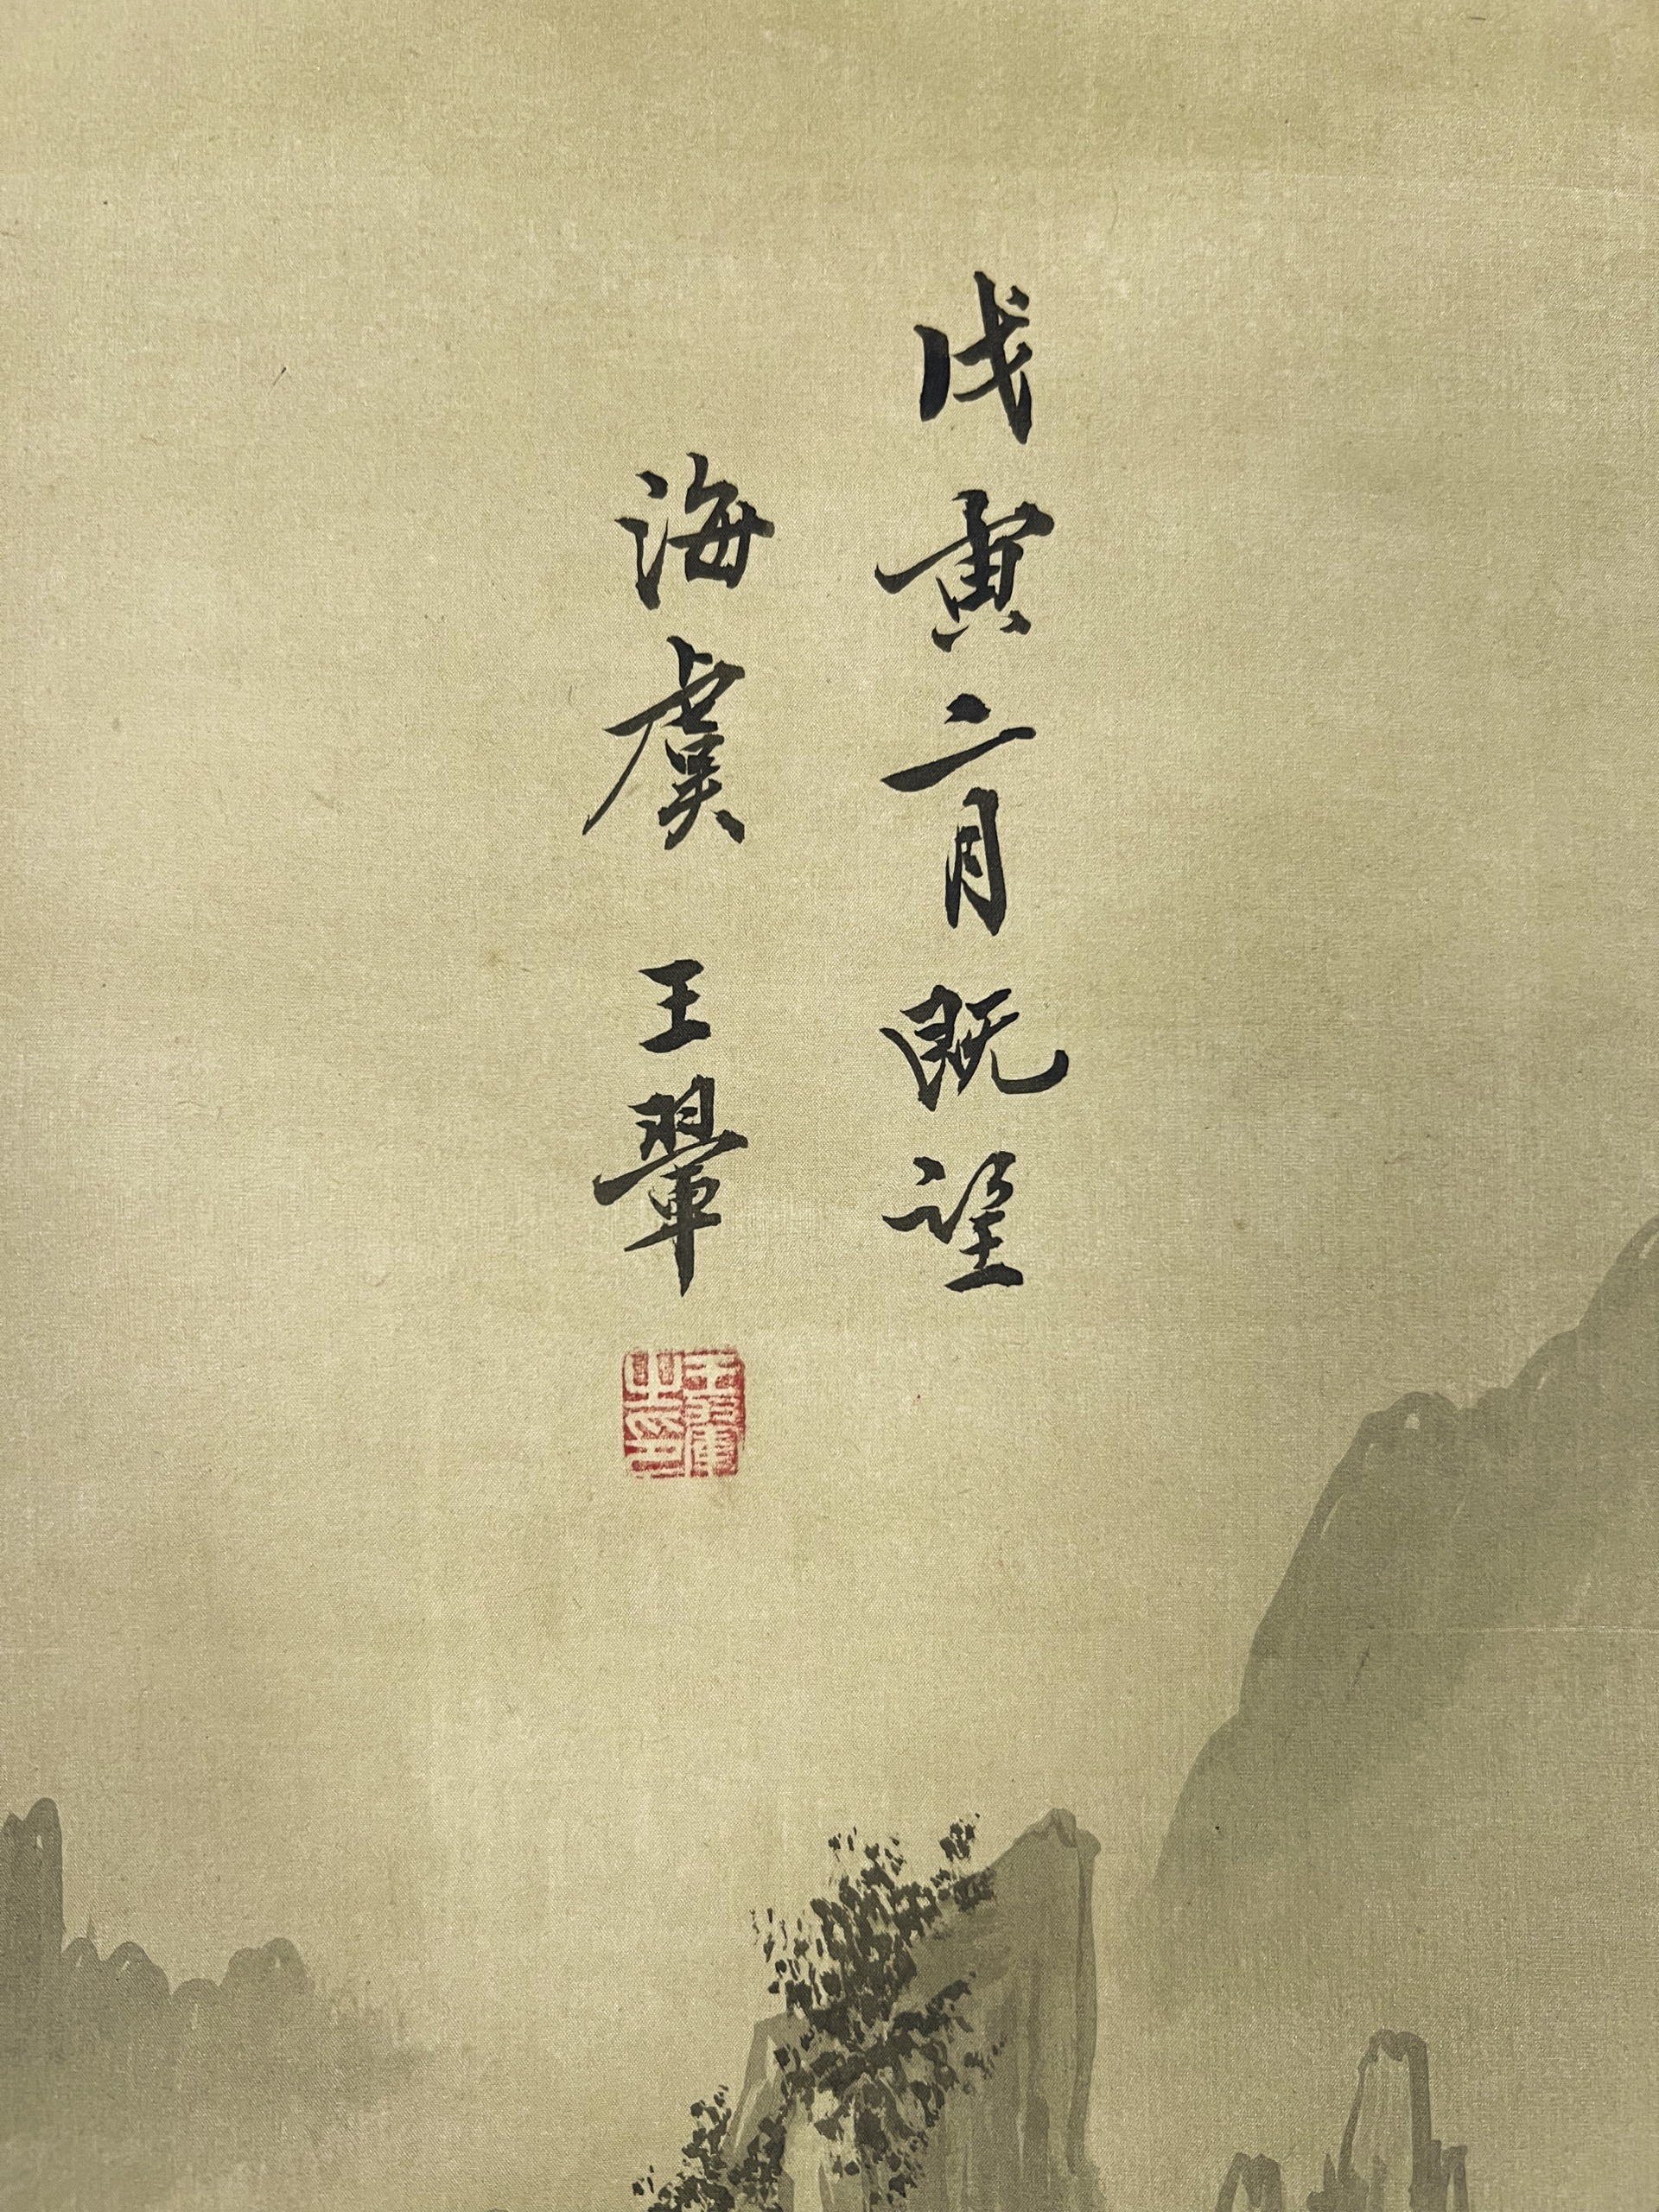 戊寅二月既望
海虞 王翬
王翬之印